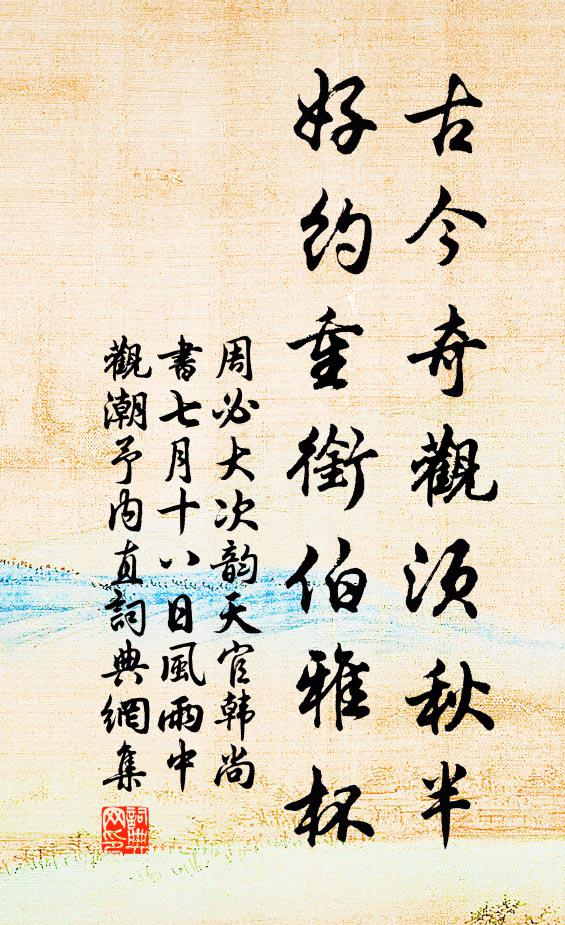 古今奇觀須秋半
好約重銜伯雅杯
周必大次韵天官韩尚
書七月十八日風雨中
觀潮予内直詞典網集